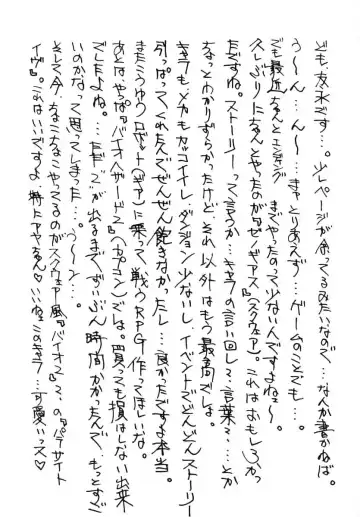 ども、友不です…。少しページが余ってるみたいなので…なんか書かねば。
う〜ん…ん〜…まぁとりあえず…ゲームのことでも…。
でも最近ちゃんとエンディングまでやったのって少ないんですよねェ〜。
久しぶりにちゃんとやったのが『ゼノギアス』(スクウェア)。これはおもしろかっ
たですねェ。ストーリーって言うか…キャラの言い回しと言葉と…とか
ちょっとわかりずらかったけど、それ以外はもう最高でしょ。
キャラもメカもカッコイイし、ダンジョン少ないし、イベントでどんどんストーリー
引っぱってくれたんでぜんぜん飽きなかったし…良かったですよ本当。
またこうゆうロボット(ギア)に乗って戦うRPG作ってほしいな。
あとは、やっぱ『バイオハザード2』(カプコン)では。買っても損はしない出来
でしたよね。…ただ“2”が出るまでずいぶん時間かかったんで、もっとすご
いのかなって思ってしまった…。う〜ん…。
そして今、ちょこちょこやってるのがスクウェア風『バイオ2』と、の『パラサイト
イヴ』。これはいいですよ 特にアヤちゃん♡ いいねェこのキャラ…可愛いっス♡